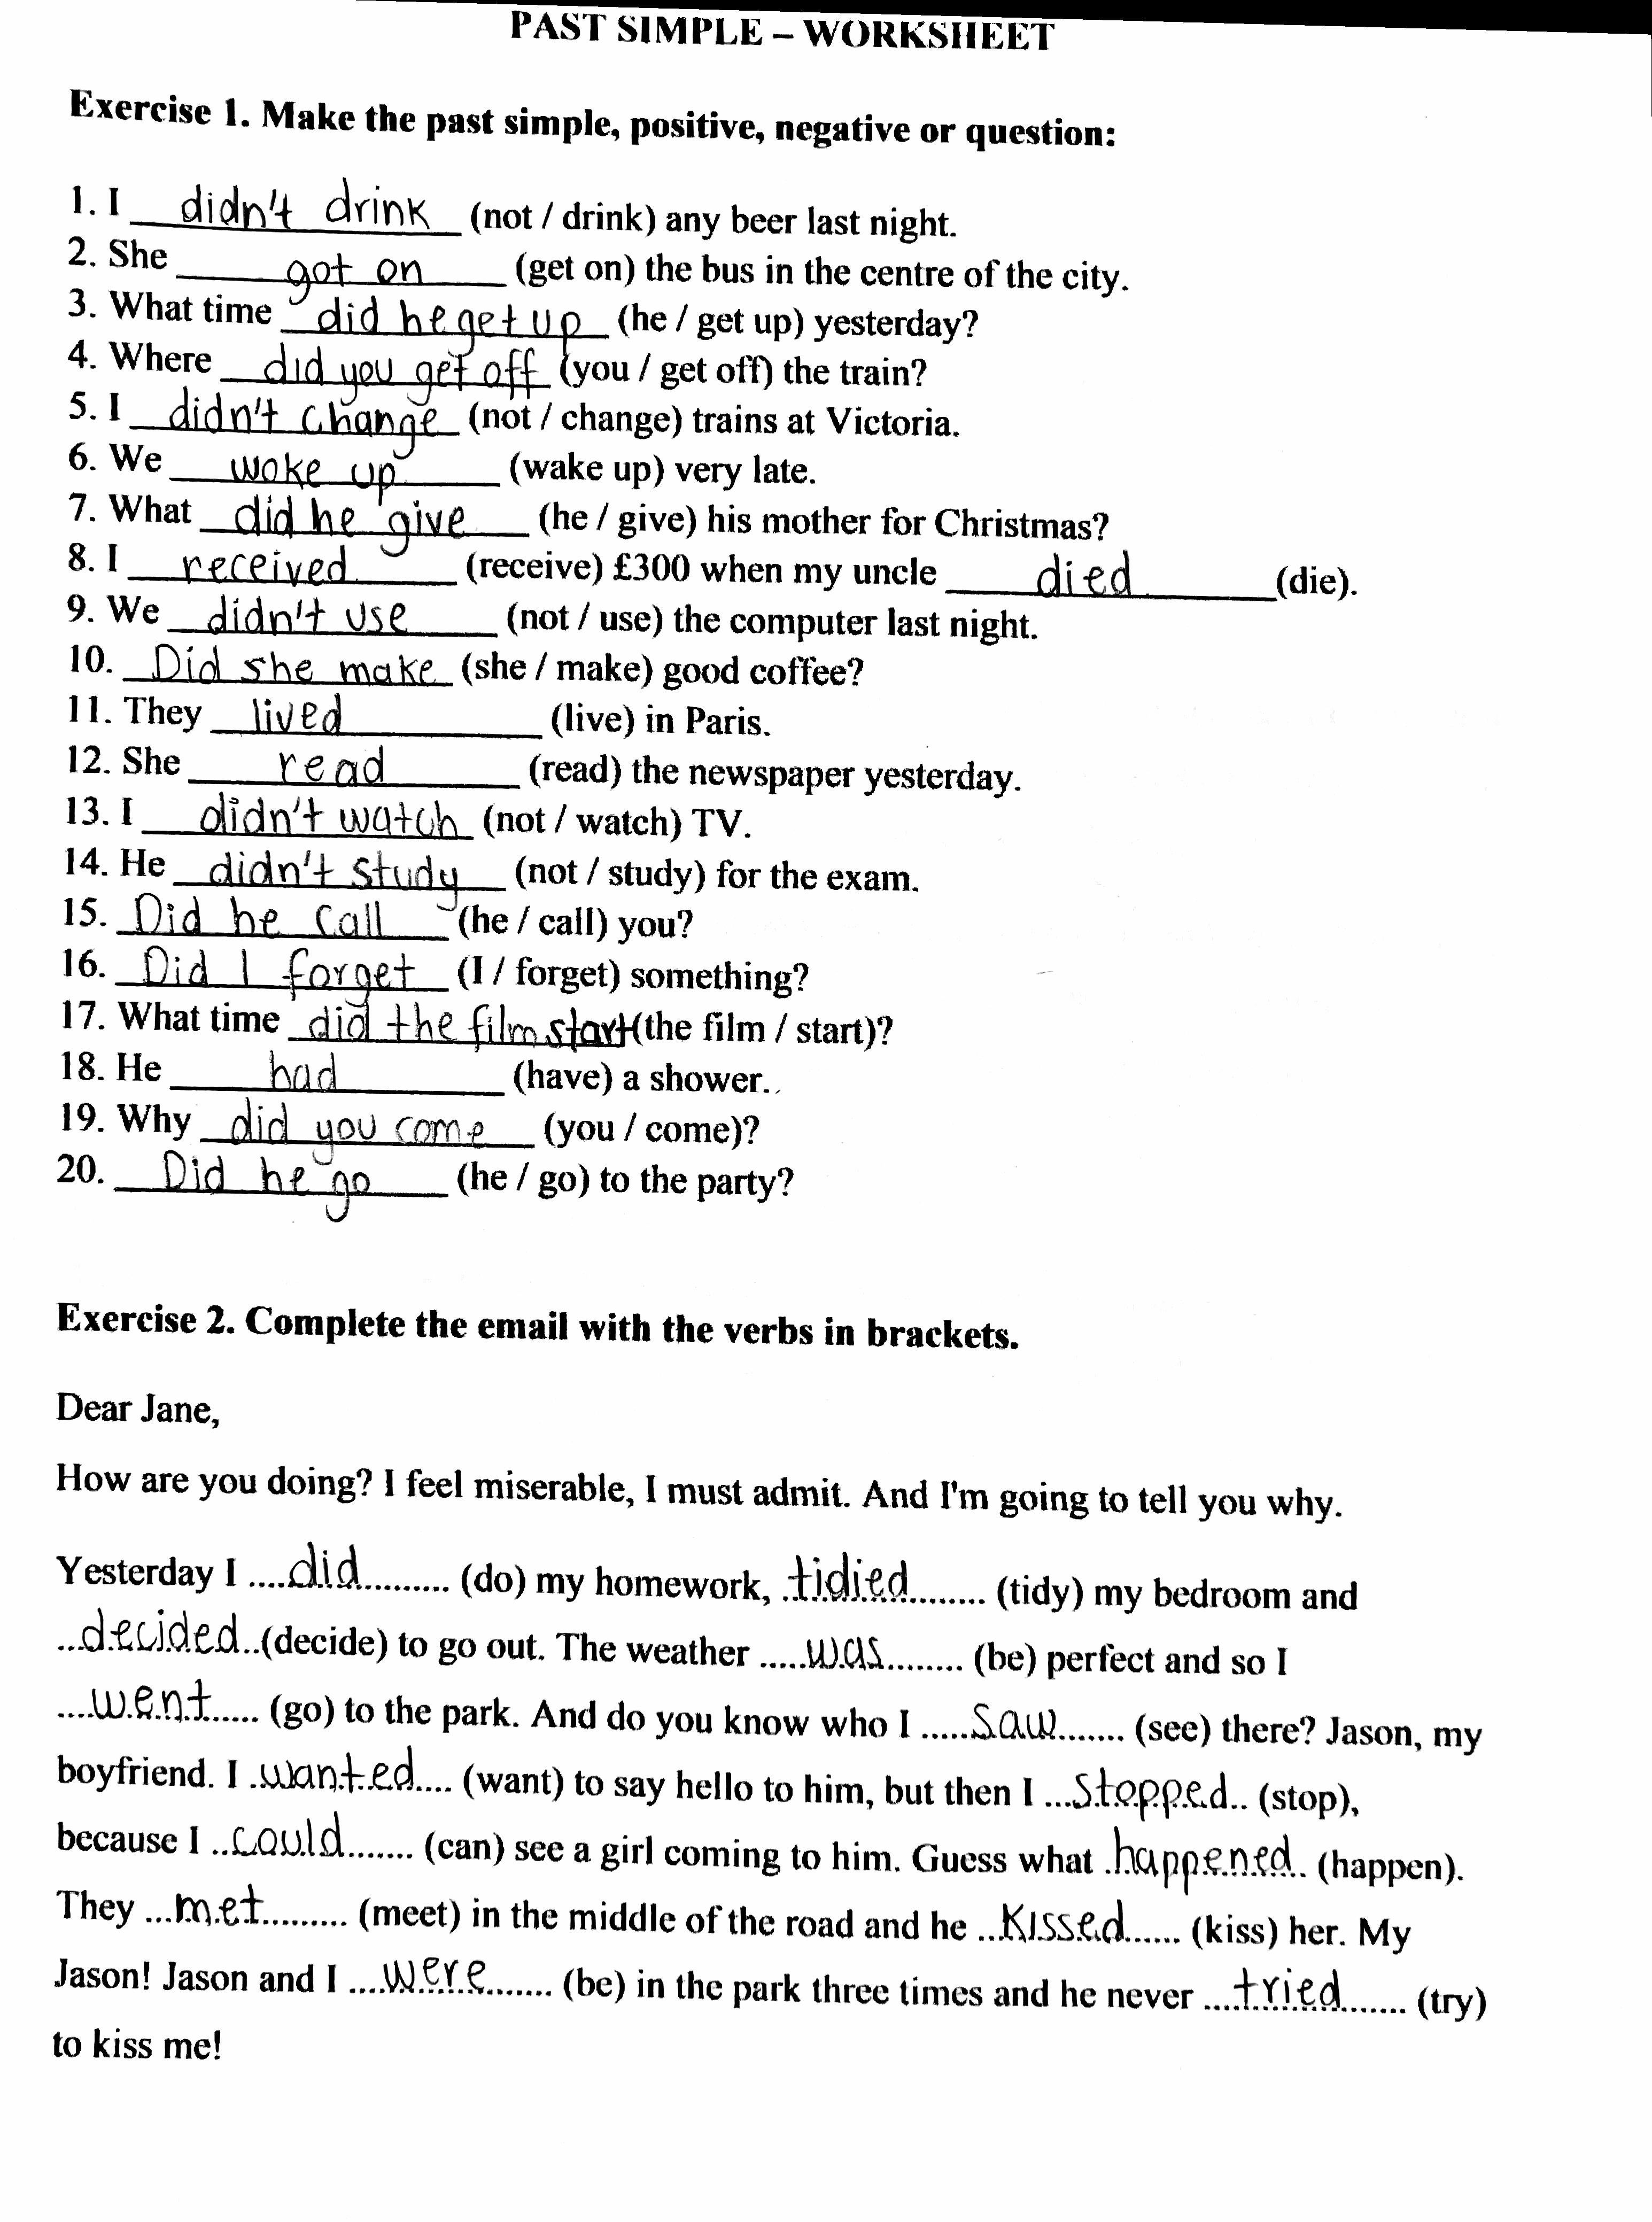 PAST SIMPLE – WORKSHEET
Exercise 1. Make the past simple, positive, negative or question:
1. I didn't drink (not / drink) any beer last night.
2. She got on (get on) the bus in the centre of the city.
3. What time did he get up (he / get up) yesterday?
4. Where did you get off (you / get off) the train?
5. I didn't change (not / change) trains at Victoria.
6. We woke up (wake up) very late.
7. What did he give (he / give) his mother for Christmas?
8. I received (receive) £300 when my uncle died (die).
9. We didn't use (not / use) the computer last night.
10. Did she make (she / make) good coffee?
11. They lived (live) in Paris.
12. She read (read) the newspaper yesterday.
13. I didn't watch (not / watch) TV.
14. He didn't study (not / study) for the exam.
15. Did he call (he / call) you?
16. Did I forget (I / forget) something?
17. What time did the film start (the film / start)?
18. He had (have) a shower.
19. Why did you come (you / come)?
20. Did he go (he / go) to the party?
Exercise 2. Complete the email with the verbs in brackets.
Dear Jane,
How are you doing? I feel miserable, I must admit. And I'm going to tell you why.
Yesterday I ....did......... (do) my homework, .tidied........ (tidy) my bedroom and
...decided..(decide) to go out. The weather .....was........ (be) perfect and so I
....went...... (go) to the park. And do you know who I .....saw....... (see) there? Jason, my
boyfriend. I .wanted.... (want) to say hello to him, but then I ...stopped.. (stop),
because I ..could....... (can) see a girl coming to him. Guess what .happened.. (happen).
They ...met......... (meet) in the middle of the road and he ...kissed...... (kiss) her. My
Jason! Jason and I ....were....... (be) in the park three times and he never ....tried....... (try)
to kiss me!